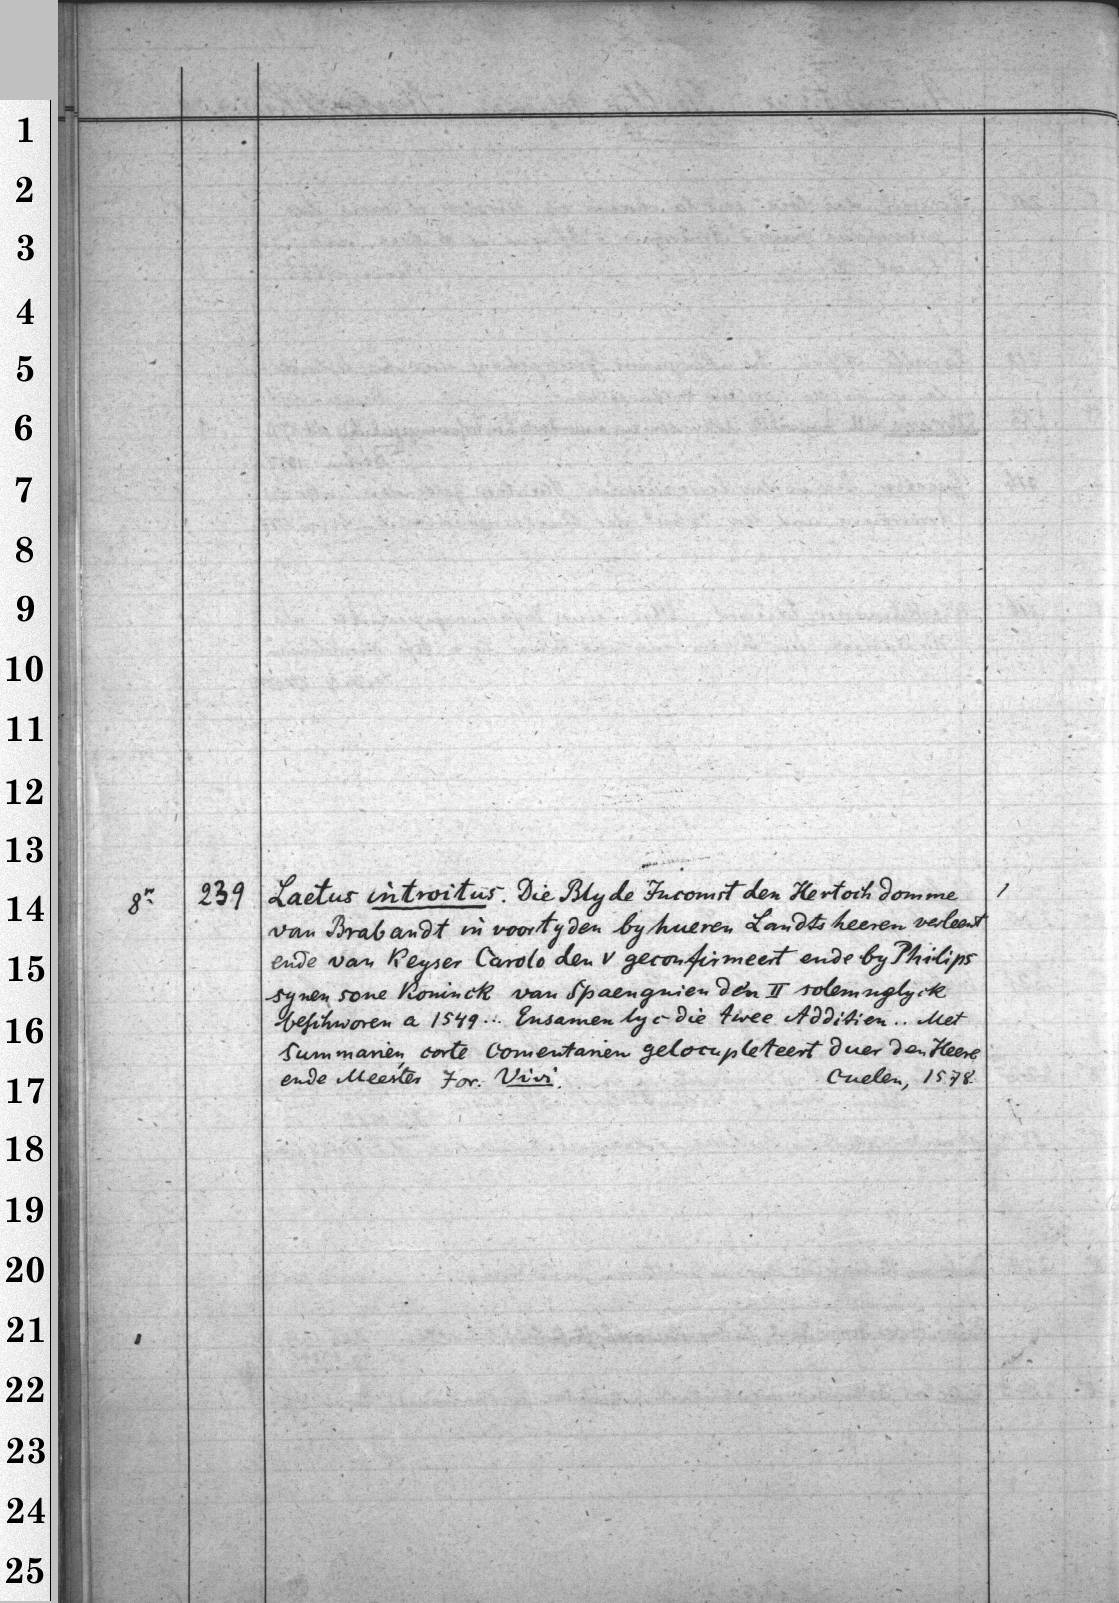 1
2
3
4
5
6
7
8
9
10
11
12
13
14
15
16
17
18
19
20
21
22
23
24
25
8° 239 Laetus introitus. Die Blyde Incomst den Hertochdomme 1
van Brabandt in voortyden by hueren Landtsheeren verleent
ende van Keyser Carolo den V geconfirmeert ende by Philips
synen sone Koninck van Spaengnien den II solemnglyck
beschworen a 1549... Ensamenlyc die twee Additien.. Met
Summarien, corte Comentarien gelocupleteert duer den Heere
ende Meester Jor. Vivi. Cuelen, 1578.